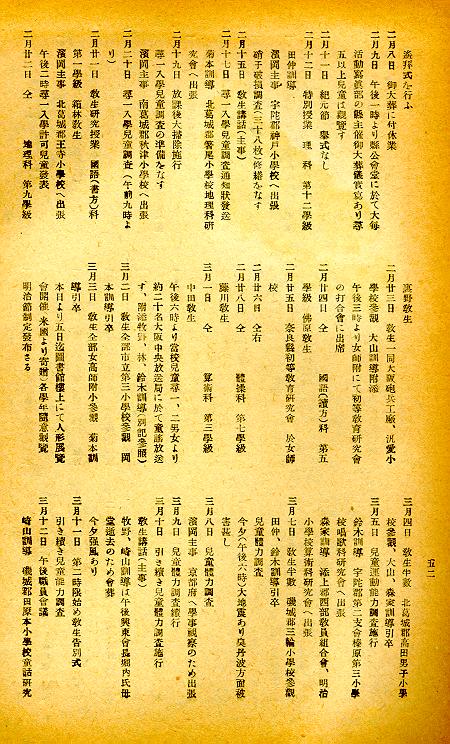 遙拜式を行ふ
二月八日　御大葬に付休業
二月九日　午後一時より縣公會堂に於て大每
活動寫眞部の縣主催御大葬儀實寫あり尋
五以上兒童は觀覽す
二月十一日　紀元節　擧式なし
二月十二日　特別授業　理　科　第十二學級
田仲訓導
濱岡主事　宇陀郡神戶小學校へ出張
硝子破損調査（三十八枚）修繕をなす
二月十五日　敎生講話（主事）
二月十七日　尋一入學兒童調査通知狀發送
菊本訓導　北葛城郡箸尾小學校地理科硏
究會へ出張
二月十九日　放課後大掃除施行
尋一入學兒童調査の準備をなす
濱岡主事　南葛城郡秋津小學校へ出張
二月二十日　尋一入學兒童調査（午前九時よ
り）
二月廿一日　敎生硏究授業　國語（書方）科
第一學級　箱林敎生
濱岡主事　北葛城郡王寺小學校へ出張
午後二時尋一入學許可兒童發表
二月廿二日　仝　　地理科　第九學級
眞野敎生
二月廿三日　敎生一同大阪砲兵工廠、汎愛小
學校參觀　大山訓導附添
午後三時より女師附にて初等敎育硏究會
の打合會に出席
二月廿四日　仝　　國語（讀方）科　第五
學級　佛原敎生
二月廿五日　奈良縣初等敎育硏究會　於女師
校
二月廿六日　仝右
二月廿八日　仝　　體操科　第七學級
藤川敎生
三月一日　仝　　算術科　第三學級
中田敎生
午後六時より當校兒童尋一、二男女より
約二十名大阪中央放送局に於て童謠放送
す、附添牧野、林、鈴木訓導（別部參照）
三月二日　敎生全部市立第三小學校參觀　岡
本訓導引卒
三月三日　敎生全部女高師附小參觀　菊本訓
導引卒
本日より五日迄圖書館樓上にて人形展覽
會開催　米國より寄贈）各學年隨意觀覽
明治節制定發布さる
五二
三月四日　敎生半數　北葛城郡高田男子小學
校參觀、大山、森家訓導引卒
三月五日　兒童運動能力調査施行
鈴木訓導　宇陀郡第二支會榛原第三小學
校唱歌科硏究會へ出張
森家訓導　添上郡西部敎員組合會、明治
小學校算術科硏究會へ出張
三月七日　敎生半數　磯城郡三輪小學校參觀
田仲、鈴木訓導引卒
兒童體力調査
今夕（午後六時）大地震あり奧丹波方面被
害甚し
三月八日　兒童體力調査
濱岡主事　京都府へ學事視察のため出張
三月九日　兒童體力調査續行
三月十日　引き續き兒童體力調査施行
敎生講話（主事）
牧野、崎山訓導は午後興東會長堀內氏母
堂逝去のため會葬
今夕强風あり
三月十一日　第二時限始め敎生告別式
引き續き兒童能力調査
三月十二日　午後職員會議
崎山訓導　磯城郡田原本小學校童話硏究